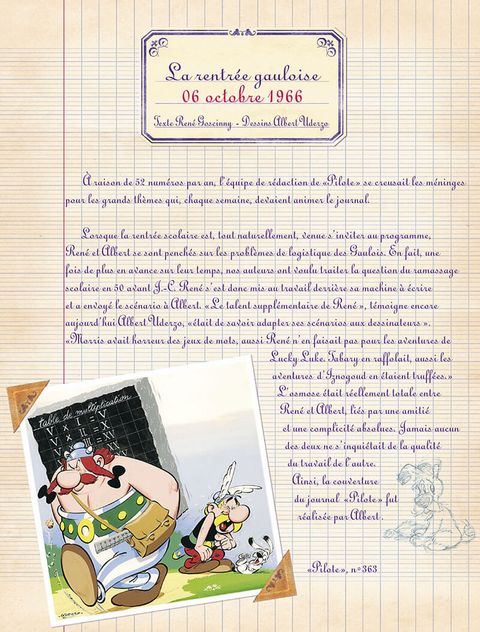 La rentrée gauloise
06 octobre 1966
Texte René Goscinny - Dessins Albert Uderzo
À raison de 52 numéros par an, l'équipe de rédaction de «Pilote» se creusait les méninges
pour les grands thèmes qui, chaque semaine, devaient animer le journal.
Lorsque la rentrée scolaire est, tout naturellement, venue s'inviter au programme,
René et Albert se sont penchés sur les problèmes de logistique des Gaulois. En fait, une
fois de plus en avance sur leur temps, nos auteurs ont voulu traiter la question du ramassage
scolaire en 50 avant J.-C. René s'est donc mis au travail derrière sa machine à écrire
et a envoyé le scénario à Albert. «Le talent supplémentaire de René», témoigne encore
aujourd'hui Albert Uderzo, «était de savoir adapter ses scénarios aux dessinateurs».
«Morris avait horreur des jeux de mots, aussi René n'en faisait pas pour les aventures de
Lucky Luke. Tabary en raffolait, aussi les
aventures d'Iznogoud en étaient truffées.»
L'osmose était réellement totale entre
René et Albert, liés par une amitié
et une complicité absolues. Jamais aucun
des deux ne s'inquiétait de la qualité
du travail de l'autre.
Ainsi, la couverture
du journal «Pilote» fut
réalisée par Albert.
«Pilote», n°363
table de multiplication
V x I = V
V x II = X
V x III = XV